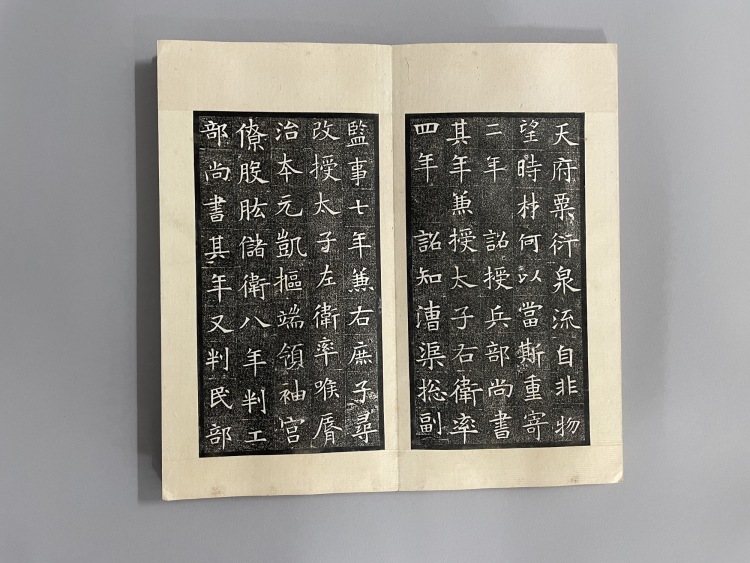 天府粟衍泉流自非物
望時材何以當斯重寄
二年 詔授兵部尚書
其年兼授太子右衛率
四年 詔知漕渠揔副
監事七年兼右庶子尋
改授太子左衛率喉脣
治本元凱摳端領袖宮
僚股肱儲衛八年判工
部尚書其年又判民部